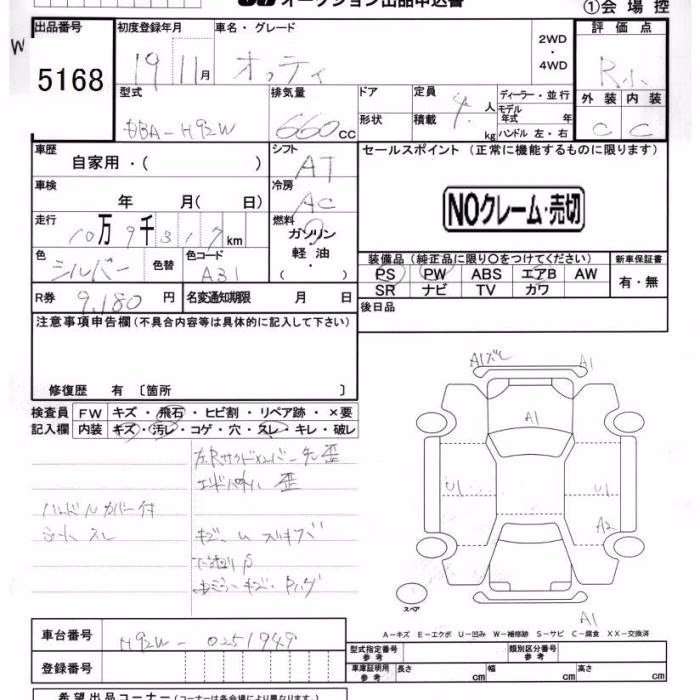 オークション出品申込書
①会場控
出品番号
5168
初度登録年月
19 11月
車名・グレード
オッティ
2WD
・
4WD
評価点
R
外装 内装
C C
型式
DBA-H92W
排気量
660cc
ドア
形状
定員
4人
積載
kg
ディーラー・並行
モデル年式 年
ハンドル 左・右
車歴
自家用・( )
シフト
AT
セールスポイント (正常に機能するものに限ります)
NOクレーム・売切
車検
年 月( 日)
冷房
AC
走行
10万9千317km
燃料
ガソリン
軽油・
( )
色
シルバー
色替
色コード
A31
装備品 (純正品に限り○をつけてください)
PS PW ABS エアB AW
SR ナビ TV カワ
新車保証書
有・無
R券
9,180円
名変通知期限 月 日
後日品
注意事項申告欄 (不具合内容等は具体的に記入して下さい)
修復歴 有 〔箇所 〕
検査員
記入欄
FW キズ・飛石・ヒビ割・リペア跡・×要
内装 キズ・汚レ・コゲ・穴・スレ・キレ・破レ
ハンドルカバー付
スレ
歪
歪
A1 A1
A1
U1 U1
A2
スペア
A1
A-キズ E-エクボ U-凹み W-補修跡 S-サビ C-腐食 XX-交換済
車台番号
H92W-0251949
登録番号
型式指定番号
参考
類別区分番号
参考
車庫証明用
参考
長さ cm
幅 cm
高さ cm
希望出品コーナー (コーナーは各会場により異なります。)
W